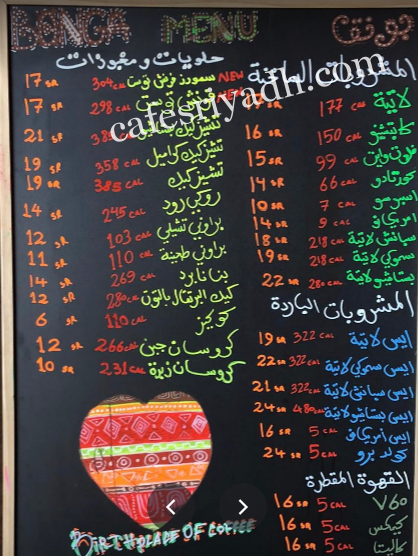 BONGA MENU بونقا
المشروبات الساخنة
لاتية 177 CAL
كابتشينو 150 CAL 16 SR
فلات وايت 99 CAL 15 SR
كورتادو 66 CAL 14 SR
اسبرسو 7 CAL 10 SR
امريكانو 9 CAL 14 SR
سبانش لاتية 218 CAL 18 SR
218 CAL 19 SR
بستاشيو لاتية 280 CAL 22 SR
المشروبات الباردة
ايس لاتية 322 CAL 19 SR
ايس لاتية 322 CAL 22 SR
ايس سبانش لاتية 322 CAL 21 SR
ايس بستاشيو لاتية 24 SR
ايس امريكانو 5 CAL 16 SR
كولد برو 5 CAL 24 SR
القهوة المقطرة
V60 5 CAL 16 SR
كيمكس 5 CAL 16 SR
كاليتا 5 CAL 16 SR
حلويات و مخبوزات
سموورز فرنش توست NEW 304 CAL 17 SR
فرنش توست NEW 298 CAL 17 SR
تشيز كيك 21 SR
تشيز كيك كراميل 358 CAL 19 SR
تشيز كيك 385 CAL 19 SR
روكي رود 245 CAL 14 SR
براوني 103 CAL 12 SR
براوني طحينة 110 CAL 11 SR
269 CAL 14 SR
كيك البرتقال بالتوت 280 CAL 12 SR
كوكيز 110 CAL 6 SR
كروسان جبن 266 CAL 12 SR
كروسان زبدة 231 CAL 10 SR
BIRTHPLACE OF COFFEE
cafesriyadh.com